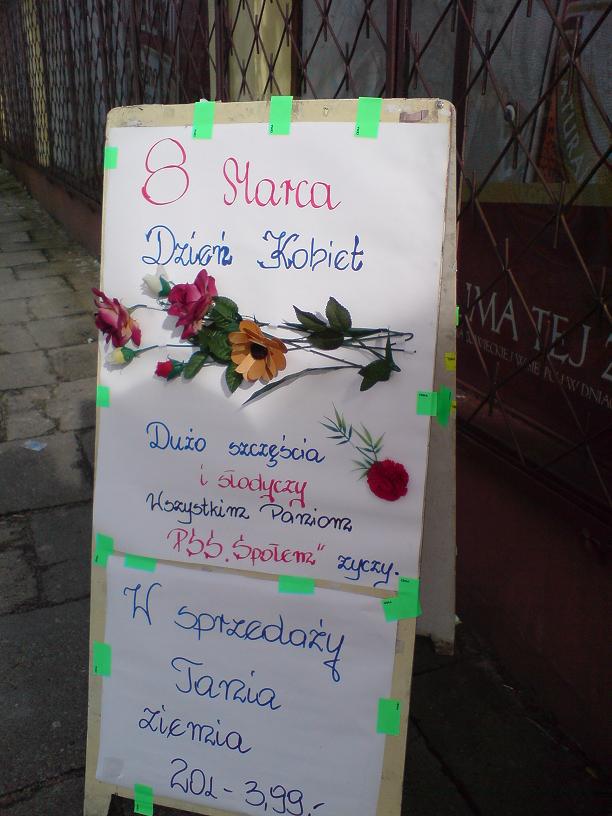 8 Marca
Dzień Kobiet
Dużo szczęścia
i słodyczy
Wszystkim Paniom
PSS. Społem" życzy.
W sprzedaży
Tania
ziemia
20l - 3,99.-
IMA TEJ Z